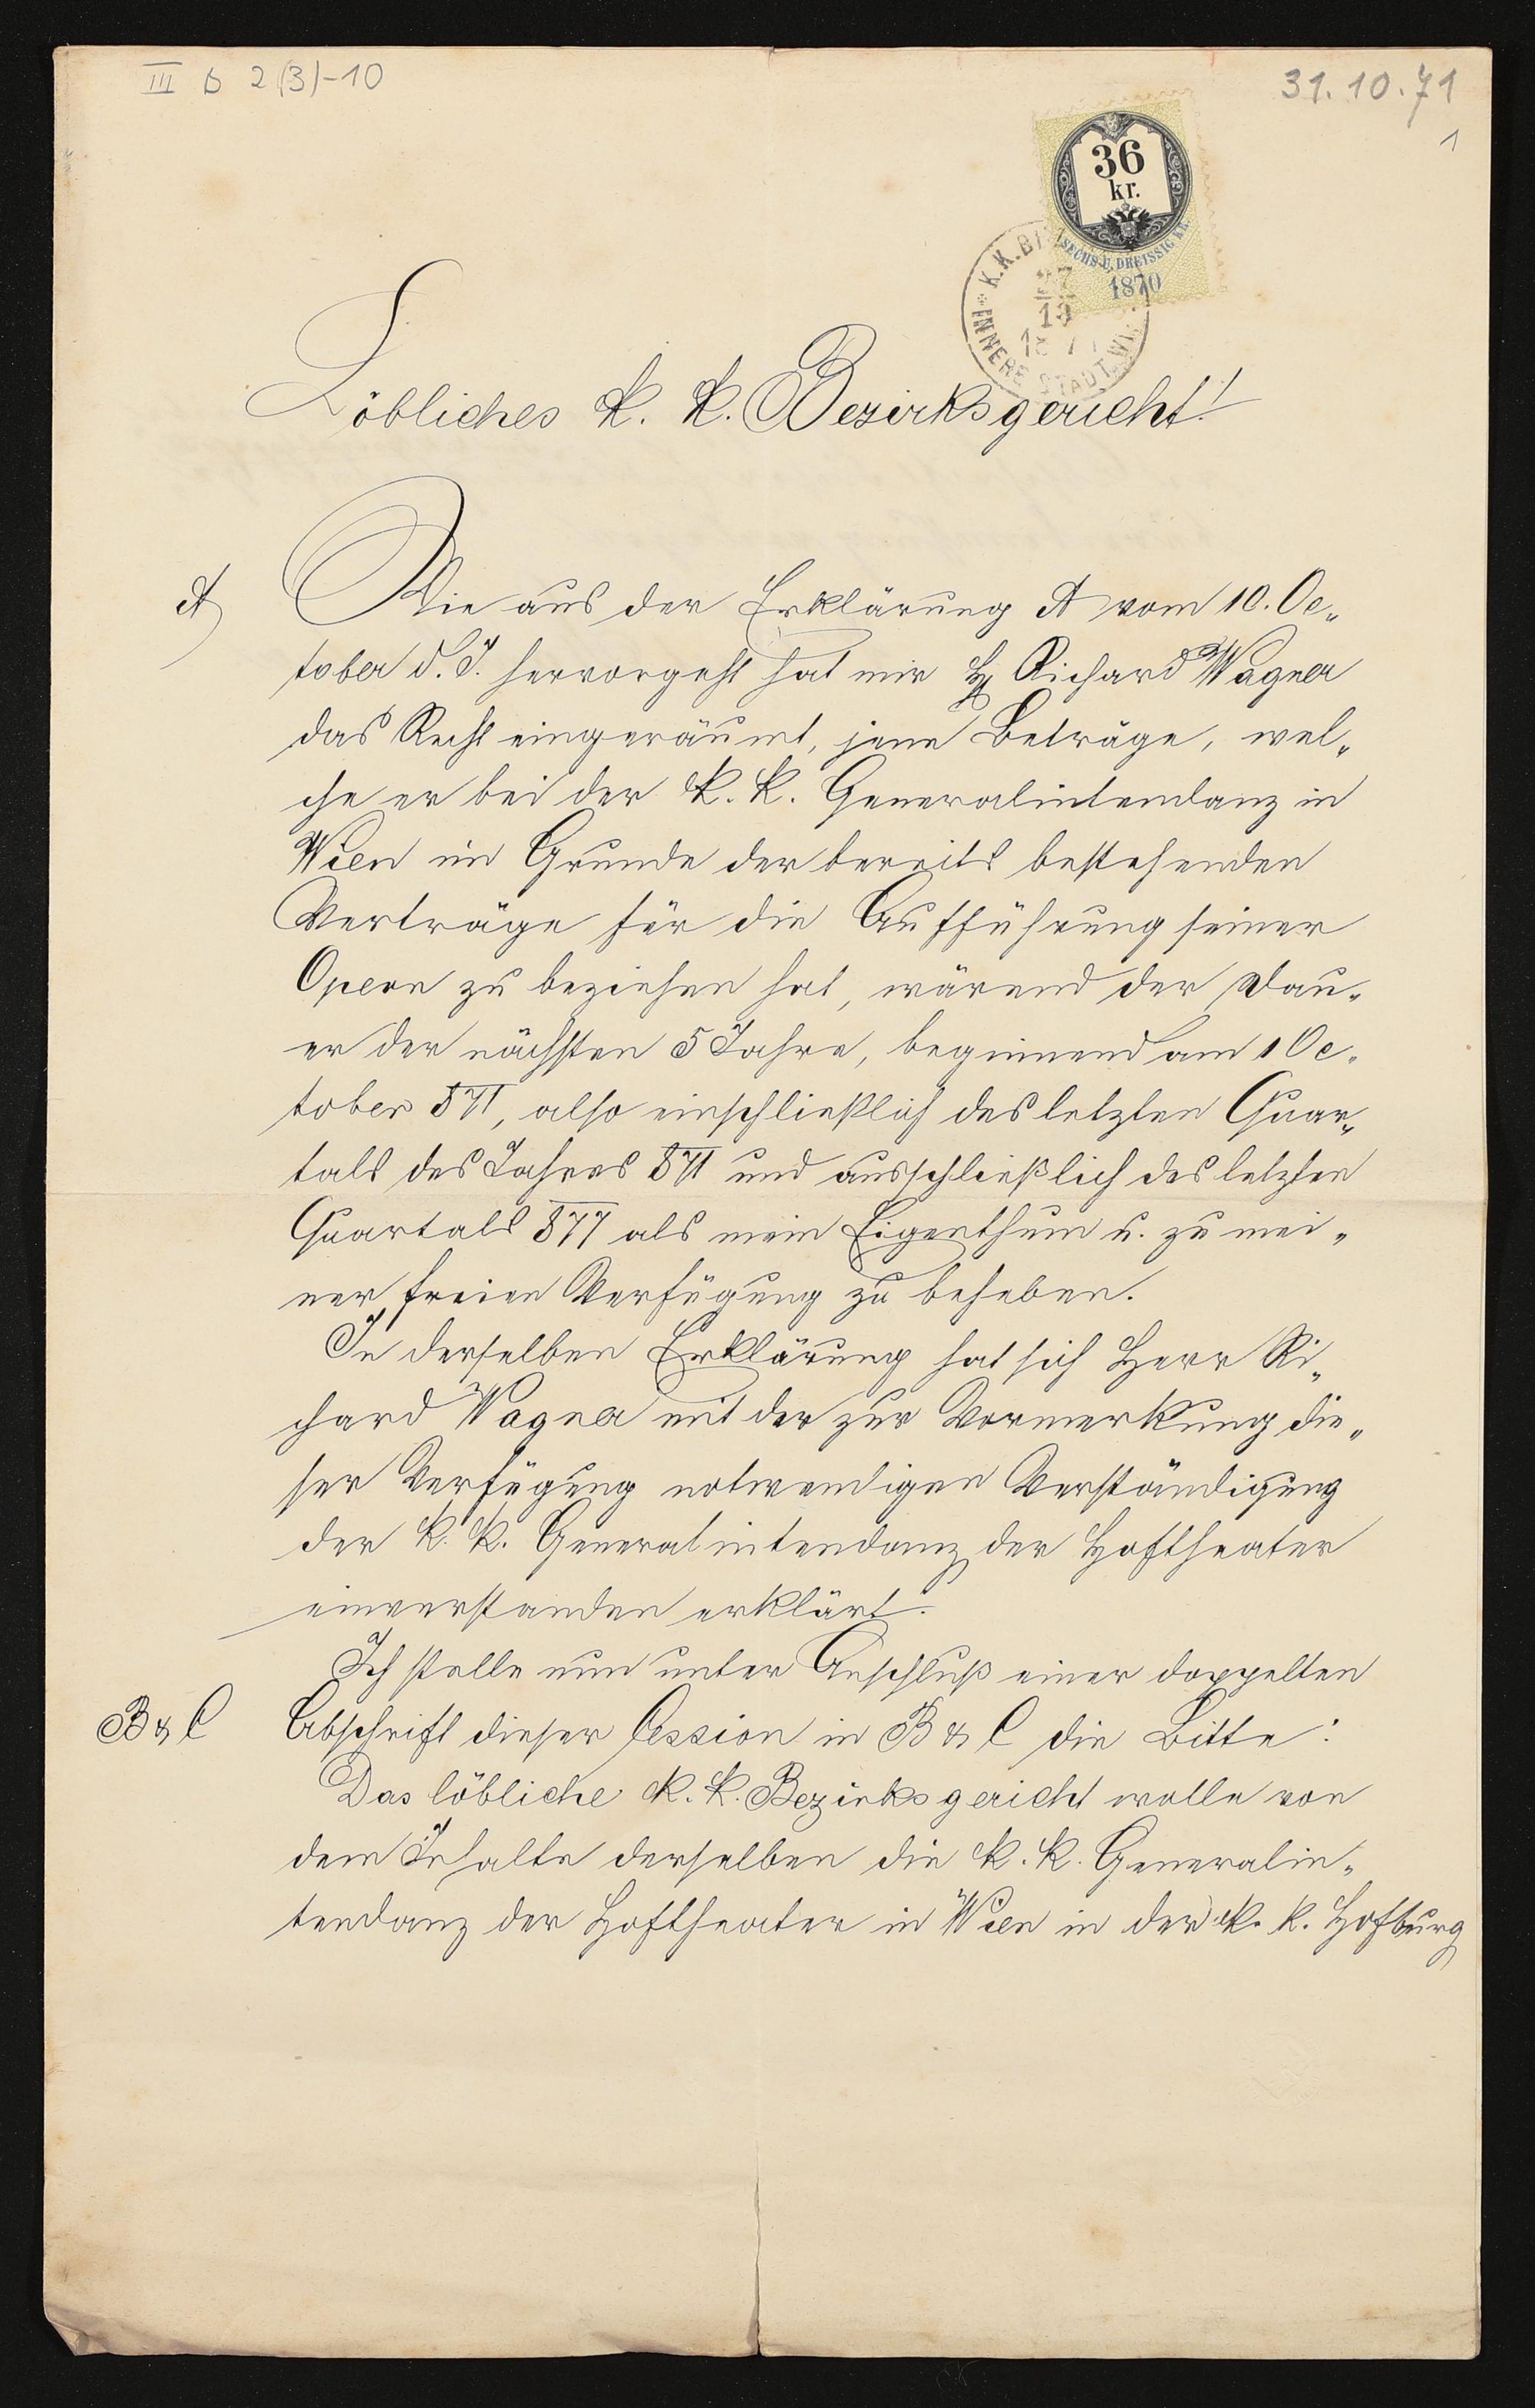 III b 2(3)-10
31.10.71
1
36
kr.
SECHS U. DREISSIG KR.
1870
K.K.
INNERE STADT WIEN
Löbliches k. k. Bezirksgericht!
A
Wie aus der Erklärung A vom 10. Oc„
tober d. J. hervorgeht hat mir H Richard Wagner
das Recht eingeräumt, jene Beträge, wel„
che er bei der k. k. Generalintendanz in
Wien im Grunde der bereits bestehenden
Verträge für die Aufführung seiner
Opern zu beziehen hat, wärend der Dau„
er der nächsten 5 Jahre, beginnend am 1 Oc„
tober 871, also einschließlich des letzten Quar„
tals des Jahres 871 und ausschließlich des letzten
Quartals 877 als mein Eigenthum u. zu mei„
ner freien Verfügung zu beheben.
In derselben Erklärung hat sich Herr Ri„
chard Wagner mit der zur Vormerkung die„
ser Verfügung notwendigen Verständigung
der k. k. Generalintendanz der Hoftheater
einverstanden erklärt.
Ich stelle nun unter Anschluß einer doppelten
B & C
Abschrift dieser Cession in B & C die Bitte:
Das löbliche k. k. Bezirksgericht wolle von
dem Inhalte derselben die k. k. Generalin„
tendanz der Hoftheater in Wien in der k. k. Hofburg